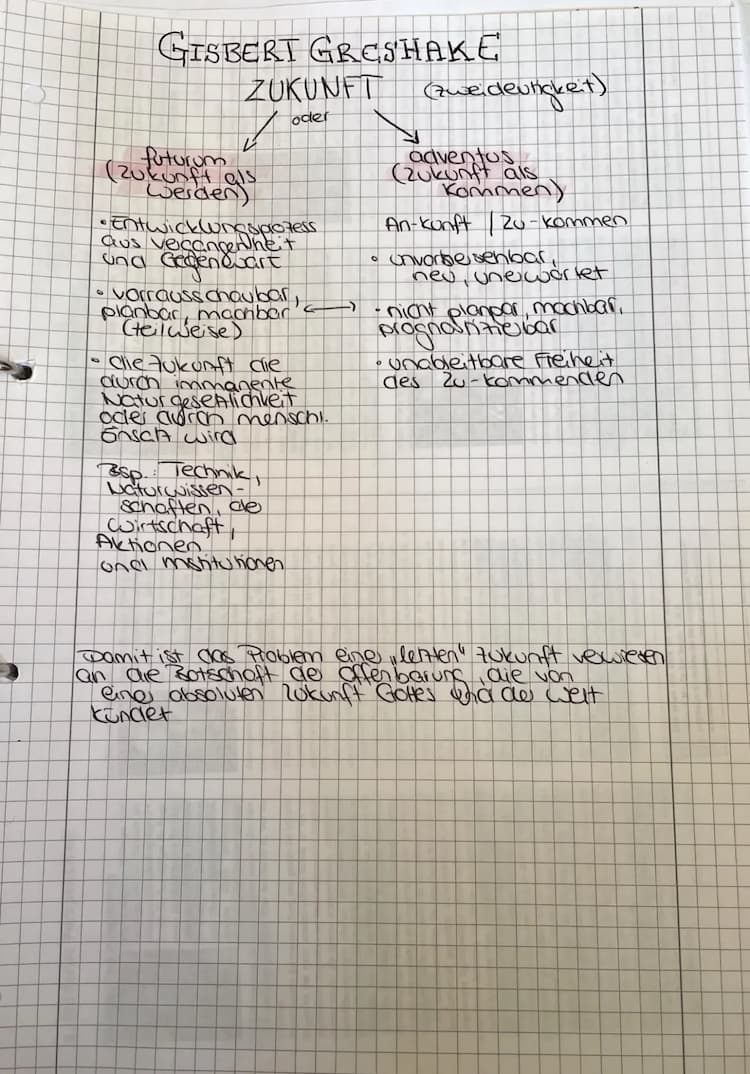 GISBERT GRESHAKE
ZUKUNFT (Zweideutigkeit)
oder
futurum
(Zukunft als
Werden)
• Entwicklungsprozess
aus Vergangenheit
und Gegenwart
• vorrausschaubar,
planbar, machbar
(teilweise)
• die Zukunft die
durch immanente
Naturgesetzlichkeit
oder durch menschl.
Einsatz wird
Bsp.: Technik,
Naturwissen-
schaften, der
Wirtschaft,
Aktionen
und Institutionen
adventus
(Zukunft als
Kommen)
An-kunft / Zu-kommen
• unvorhersehbar,
neu, unerwartet
• nicht planbar, machbar,
prognostizierbar
• unableitbare Freiheit
des Zu-kommenden
Damit ist das Problem einer „letzten" Zukunft verwiesen
an die Botschaft der Offenbarung, die von
einer absoluten Zukunft Gottes und der Welt
kündet